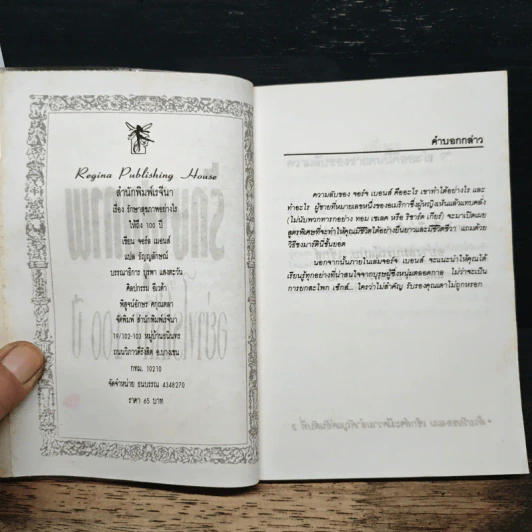 Regina Publishing House
สำนักพิมพ์เรจีนา
เรื่อง รักษาสุขภาพอย่างไร
ให้ถึง 100 ปี
เขียน จอร์ล เมอนส์
แปล รัญญลักษณ์
บรรณาธิการ บูรพา แสงตะวัน
ศิลปกรรม อีเวต้า
พิสูจน์อักษร ศกุณตลา
จัดพิมพ์ สำนักพิมพ์เรจีนา
19/102-103 หมู่บ้านชนินทร
ถนนวิภาวดีรังสิต อ.บางเขน
กทม. 10210
จัดจำหน่าย ธนบรรณ 4348270
ราคา 65 บาท
คำบอกกล่าว
ความลับของ จอร์จ เบอนส์ คืออะไร เขาทำได้อย่างไร และ
ทำอะไร ผู้ชายที่หมายเลขหนึ่งของอเมริกาซึ่งผู้หญิงเห็นแล้วแทบคลั่ง
(ไม่นับพวกดาราอย่าง ทอม เซเลค หรือ ริชาร์ด เกียร์) จะมาเปิดเผย
สูตรพิเศษที่จะทำให้คุณมีชีวิตได้อย่างยืนยาวและมีชีวิตชีวา แถมด้วย
วิธีชงมาร์ตินี่ชั้นยอด
นอกจากนั้นภายในเล่มจอร์จ เบอนส์ จะแนะนำให้คุณได้
เรียนรู้ทุกอย่างที่น่าสนใจจากบุรุษผู้ซึ่งหนุ่มตลอดกาล ไม่ว่าจะเป็น
การยกสะโพก เซ็กส์... ใครว่าไม่สำคัญ รับรองคุณเดาไม่ถูกหรอก